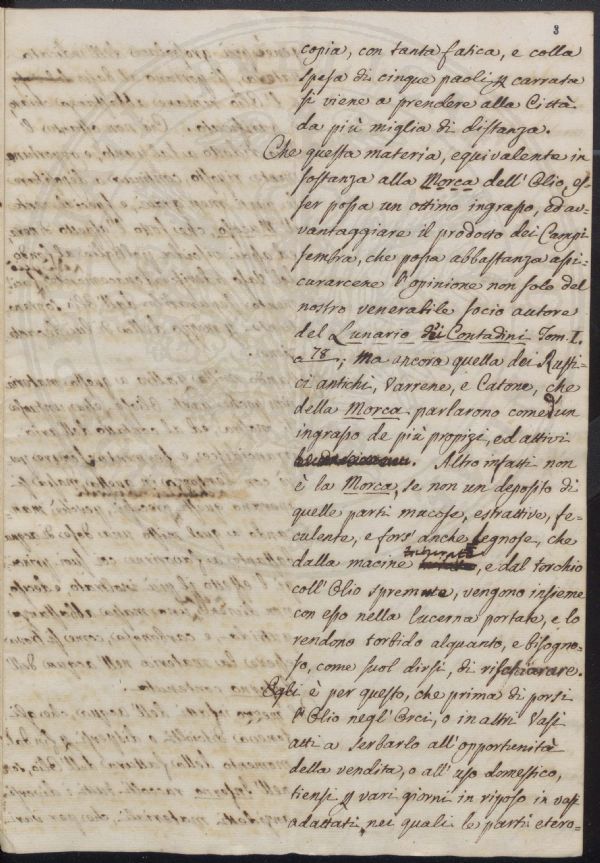 3
copia, con tanta fatica, e colla
spesa di cinque paoli p carrata
si viene a prendere alla Città
da più miglia di distanza.
Che questa materia, equivalente in
sostanza alla Morca dell'Olio, es-
ser possa un ottimo ingrasso, ed av-
vantaggiare il prodotto dei Campi
sembra, che possa abbastanza assi-
curarcene l'opinione non solo del
nostro venerabile socio autore
del Lunario dei Contadini Tom. I.
c 78; Ma ancora quella dei Rusti-
ci antichi, Varrene, e Catone, che
della Morca parlarono come d'un
ingrasso de più propizi, ed attivi
. Altro infatti non
è la Morca, se non un deposito di
quelle parti mucose, estrattive, fe-
culente, e fors'anche legnose, che
dalla macine, e dal torchio
coll'Olio spremute, vengono insieme
con esso nella lucerna portate, e lo
rendono torbido alquanto, e bisogno-
so, come suol dirsi, di rischiarare.
Egli è per questo, che prima di porsi
l'Olio negl'Orci, o in altri Vasi
atti a serbarlo all'opportunità
della vendita, o all'uso domestico,
tiensi p vari giorni in riposo in vasi
adattati, nei quali le parti etero-